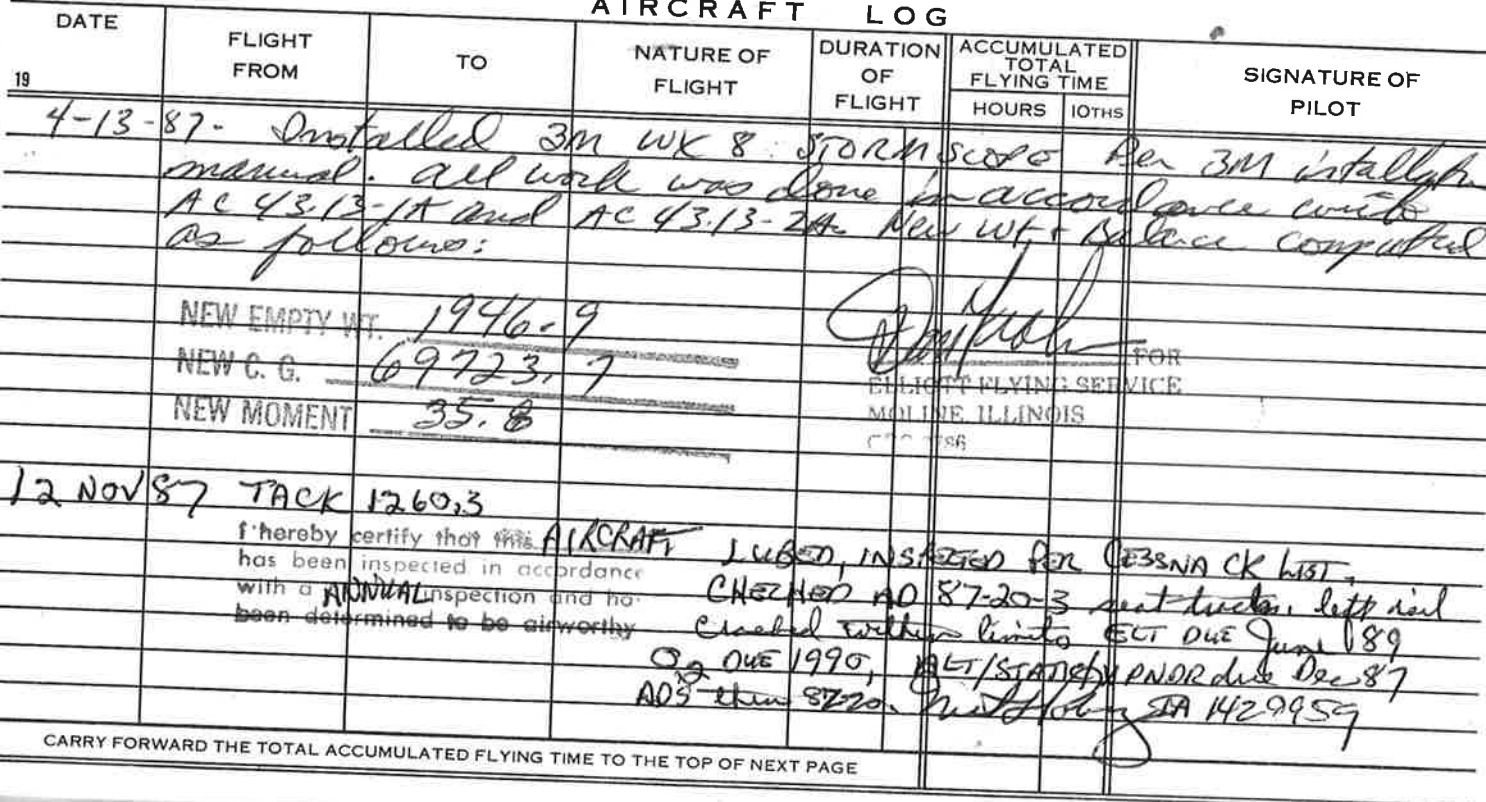 AIRCRAFT LOG
DATE
19
FLIGHT FROM
TO
NATURE OF FLIGHT
DURATION OF FLIGHT
ACCUMULATED TOTAL FLYING TIME
HOURS
10THS
SIGNATURE OF PILOT
4-13-87- Installed 3M WX 8 STORMSCOPE Per 3M
manual. All work was done in accordance with
AC 43.13-1A and AC 43.13-2A. New Wt. + Balance computed
as follows:
NEW EMPTY WT. 1946.9
NEW C. G. 69723.7
NEW MOMENT 35.8
FOR
ELLIOTT FLYING SERVICE
MOLINE, ILLINOIS
12 NOV 87 TACK 1260.3
I hereby certify that this AIRCRAFT
has been inspected in accordance
with a ANNUAL inspection and ha
been determined to be airworthy
LUBED, INSPECTED PER CESSNA CK LIST,
AD 87-20-3 seat left rail
Cracked within limits ELT DUE June 89
O2 DUE 1990, ALT/STATIC/ due Dec 87
ADS thru 87-20. IA 1429959
CARRY FORWARD THE TOTAL ACCUMULATED FLYING TIME TO THE TOP OF NEXT PAGE